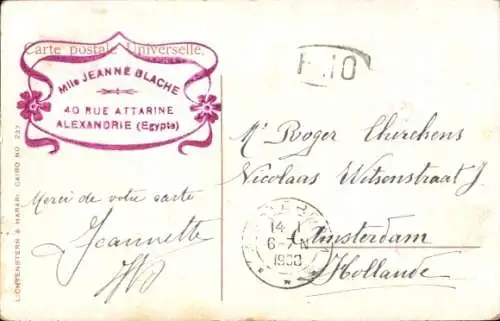 Carte postale Universelle.
Mlle JEANNE BLACHE
40 RUE ATTARINE
ALEXANDRIE (Egypte)
Merci de votre carte
Jeannette
LICHTENSTERN & HARARI CAIRO NO 237
Mr Roger Churchens
Nicolaas Witsenstraat
Amsterdam
Hollande
14
6-7 N